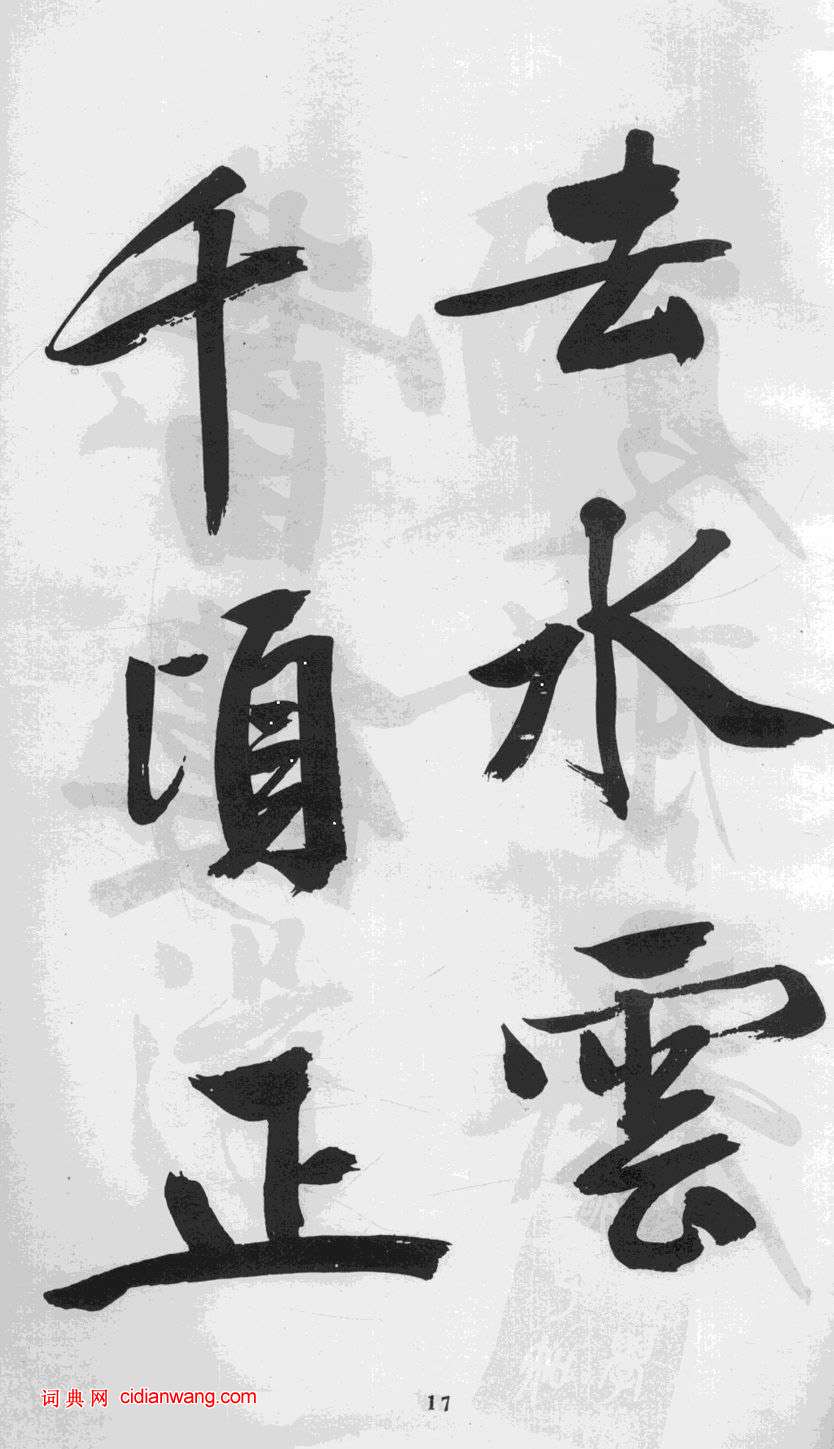 去水雲
千頃正
词典网 cidianwang.com
17